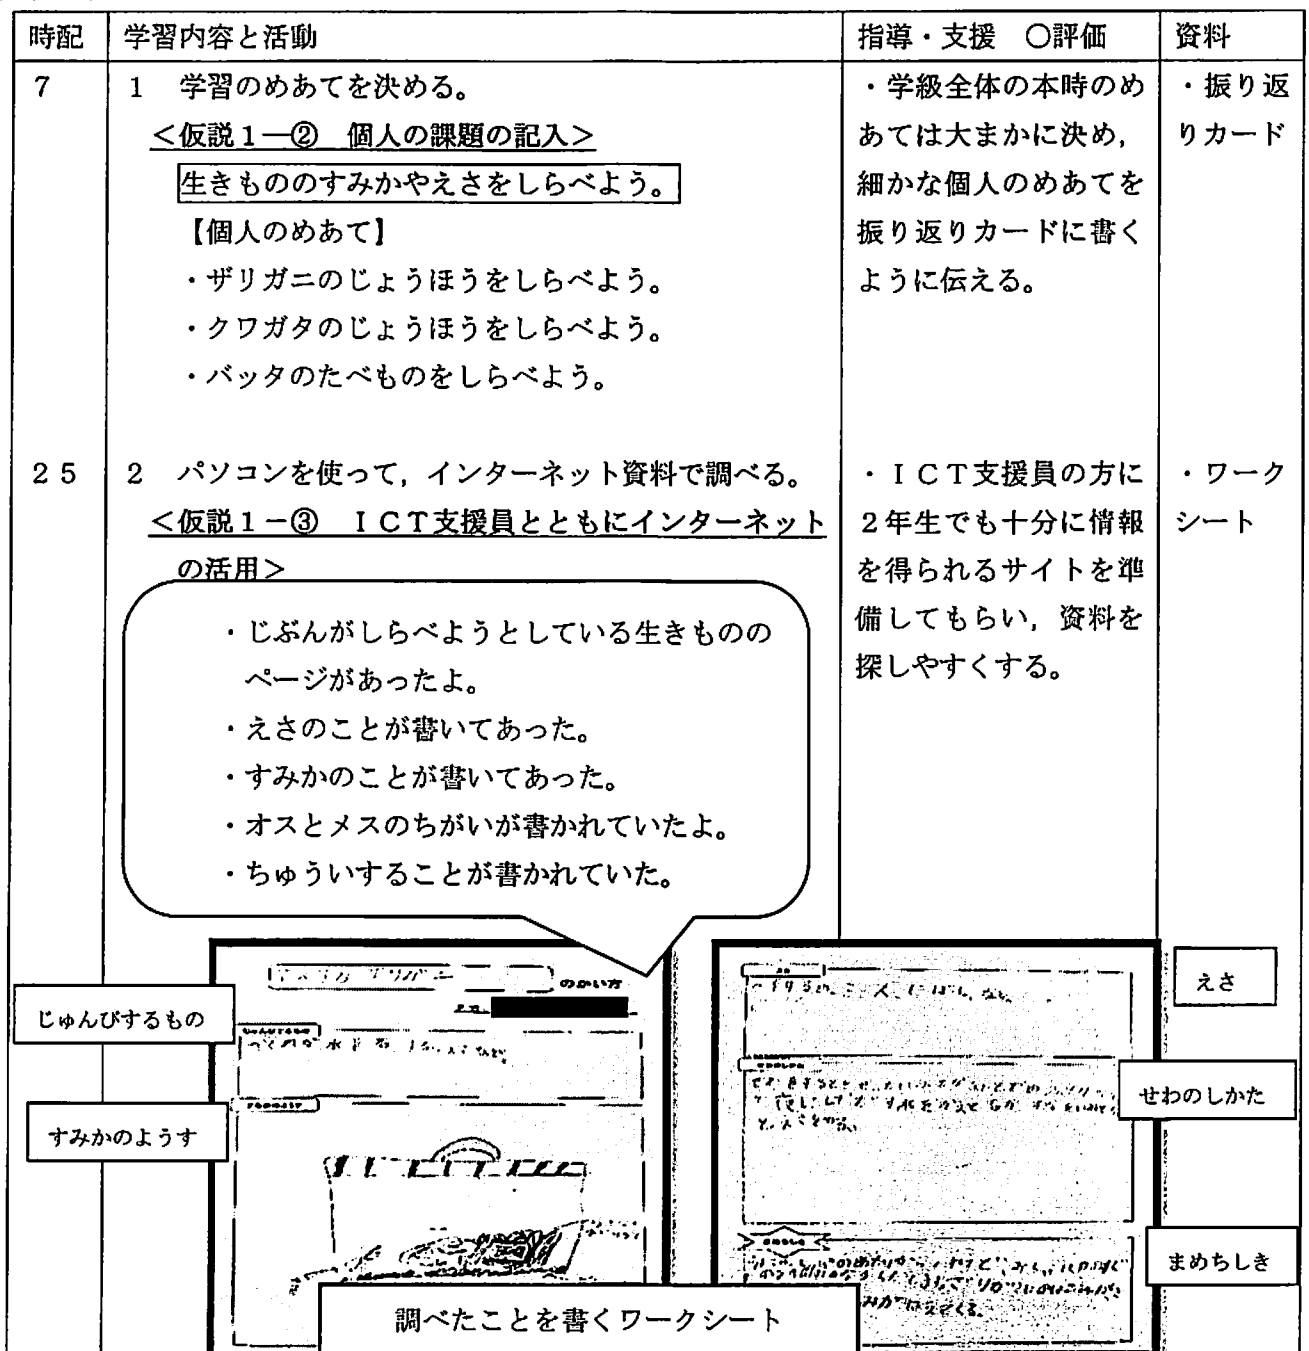 時配 学習内容と活動 指導・支援 ○評価 資料
7 1 学習のめあてを決める。
<仮説1―② 個人の課題の記入>
生きもののすみかやえさをしらべよう。
【個人のめあて】
・ザリガニのじょうほうをしらべよう。
・クワガタのじょうほうをしらべよう。
・バッタのたべものをしらべよう。
・学級全体の本時のめ
あては大まかに決め,
細かな個人のめあてを
振り返りカードに書く
ように伝える。
・振り返
りカード
25 2 パソコンを使って,インターネット資料で調べる。
<仮説1－③ ICT支援員とともにインターネット
の活用>
・じぶんがしらべようとしている生きものの
ページがあったよ。
・えさのことが書いてあった。
・すみかのことが書いてあった。
・オスとメスのちがいが書かれていたよ。
・ちゅういすることが書かれていた。
・ICT支援員の方に
2年生でも十分に情報
を得られるサイトを準
備してもらい,資料を
探しやすくする。
・ワーク
シート
じゅんびするもの
すみかのようす
のかい方
えさ
せわのしかた
まめちしき
調べたことを書くワークシート